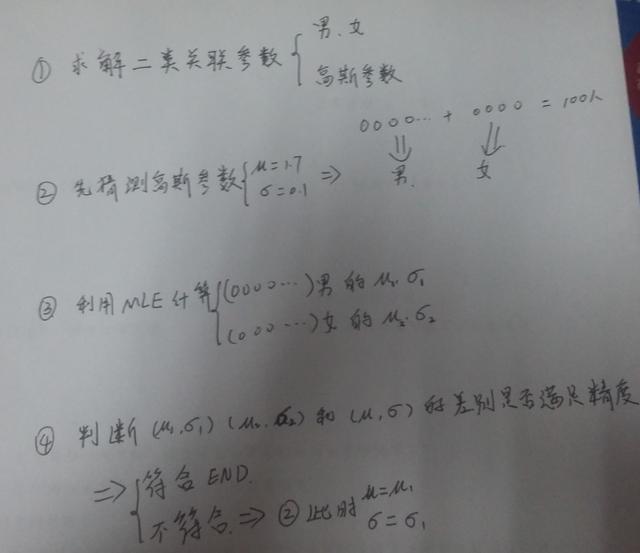 ① 求解二类关联参数{ 男、女
高斯参数
0000… + 0000 = 100人
② 先猜测高斯参数{ μ=1.7
σ=0.1 ⇒ 男 女
③ 利用MLE计算{ (0000…)男的 μ₁.σ₁
(000…)女的 μ₂.σ₂
④ 判断 (μ₁,σ₁) (μ₂,σ₂) 和 (μ,σ) 的差别是否满足精度
⇒{ 符合 END.
不符合. ⇒ ② 此时 μ=μ₁
σ=σ₁